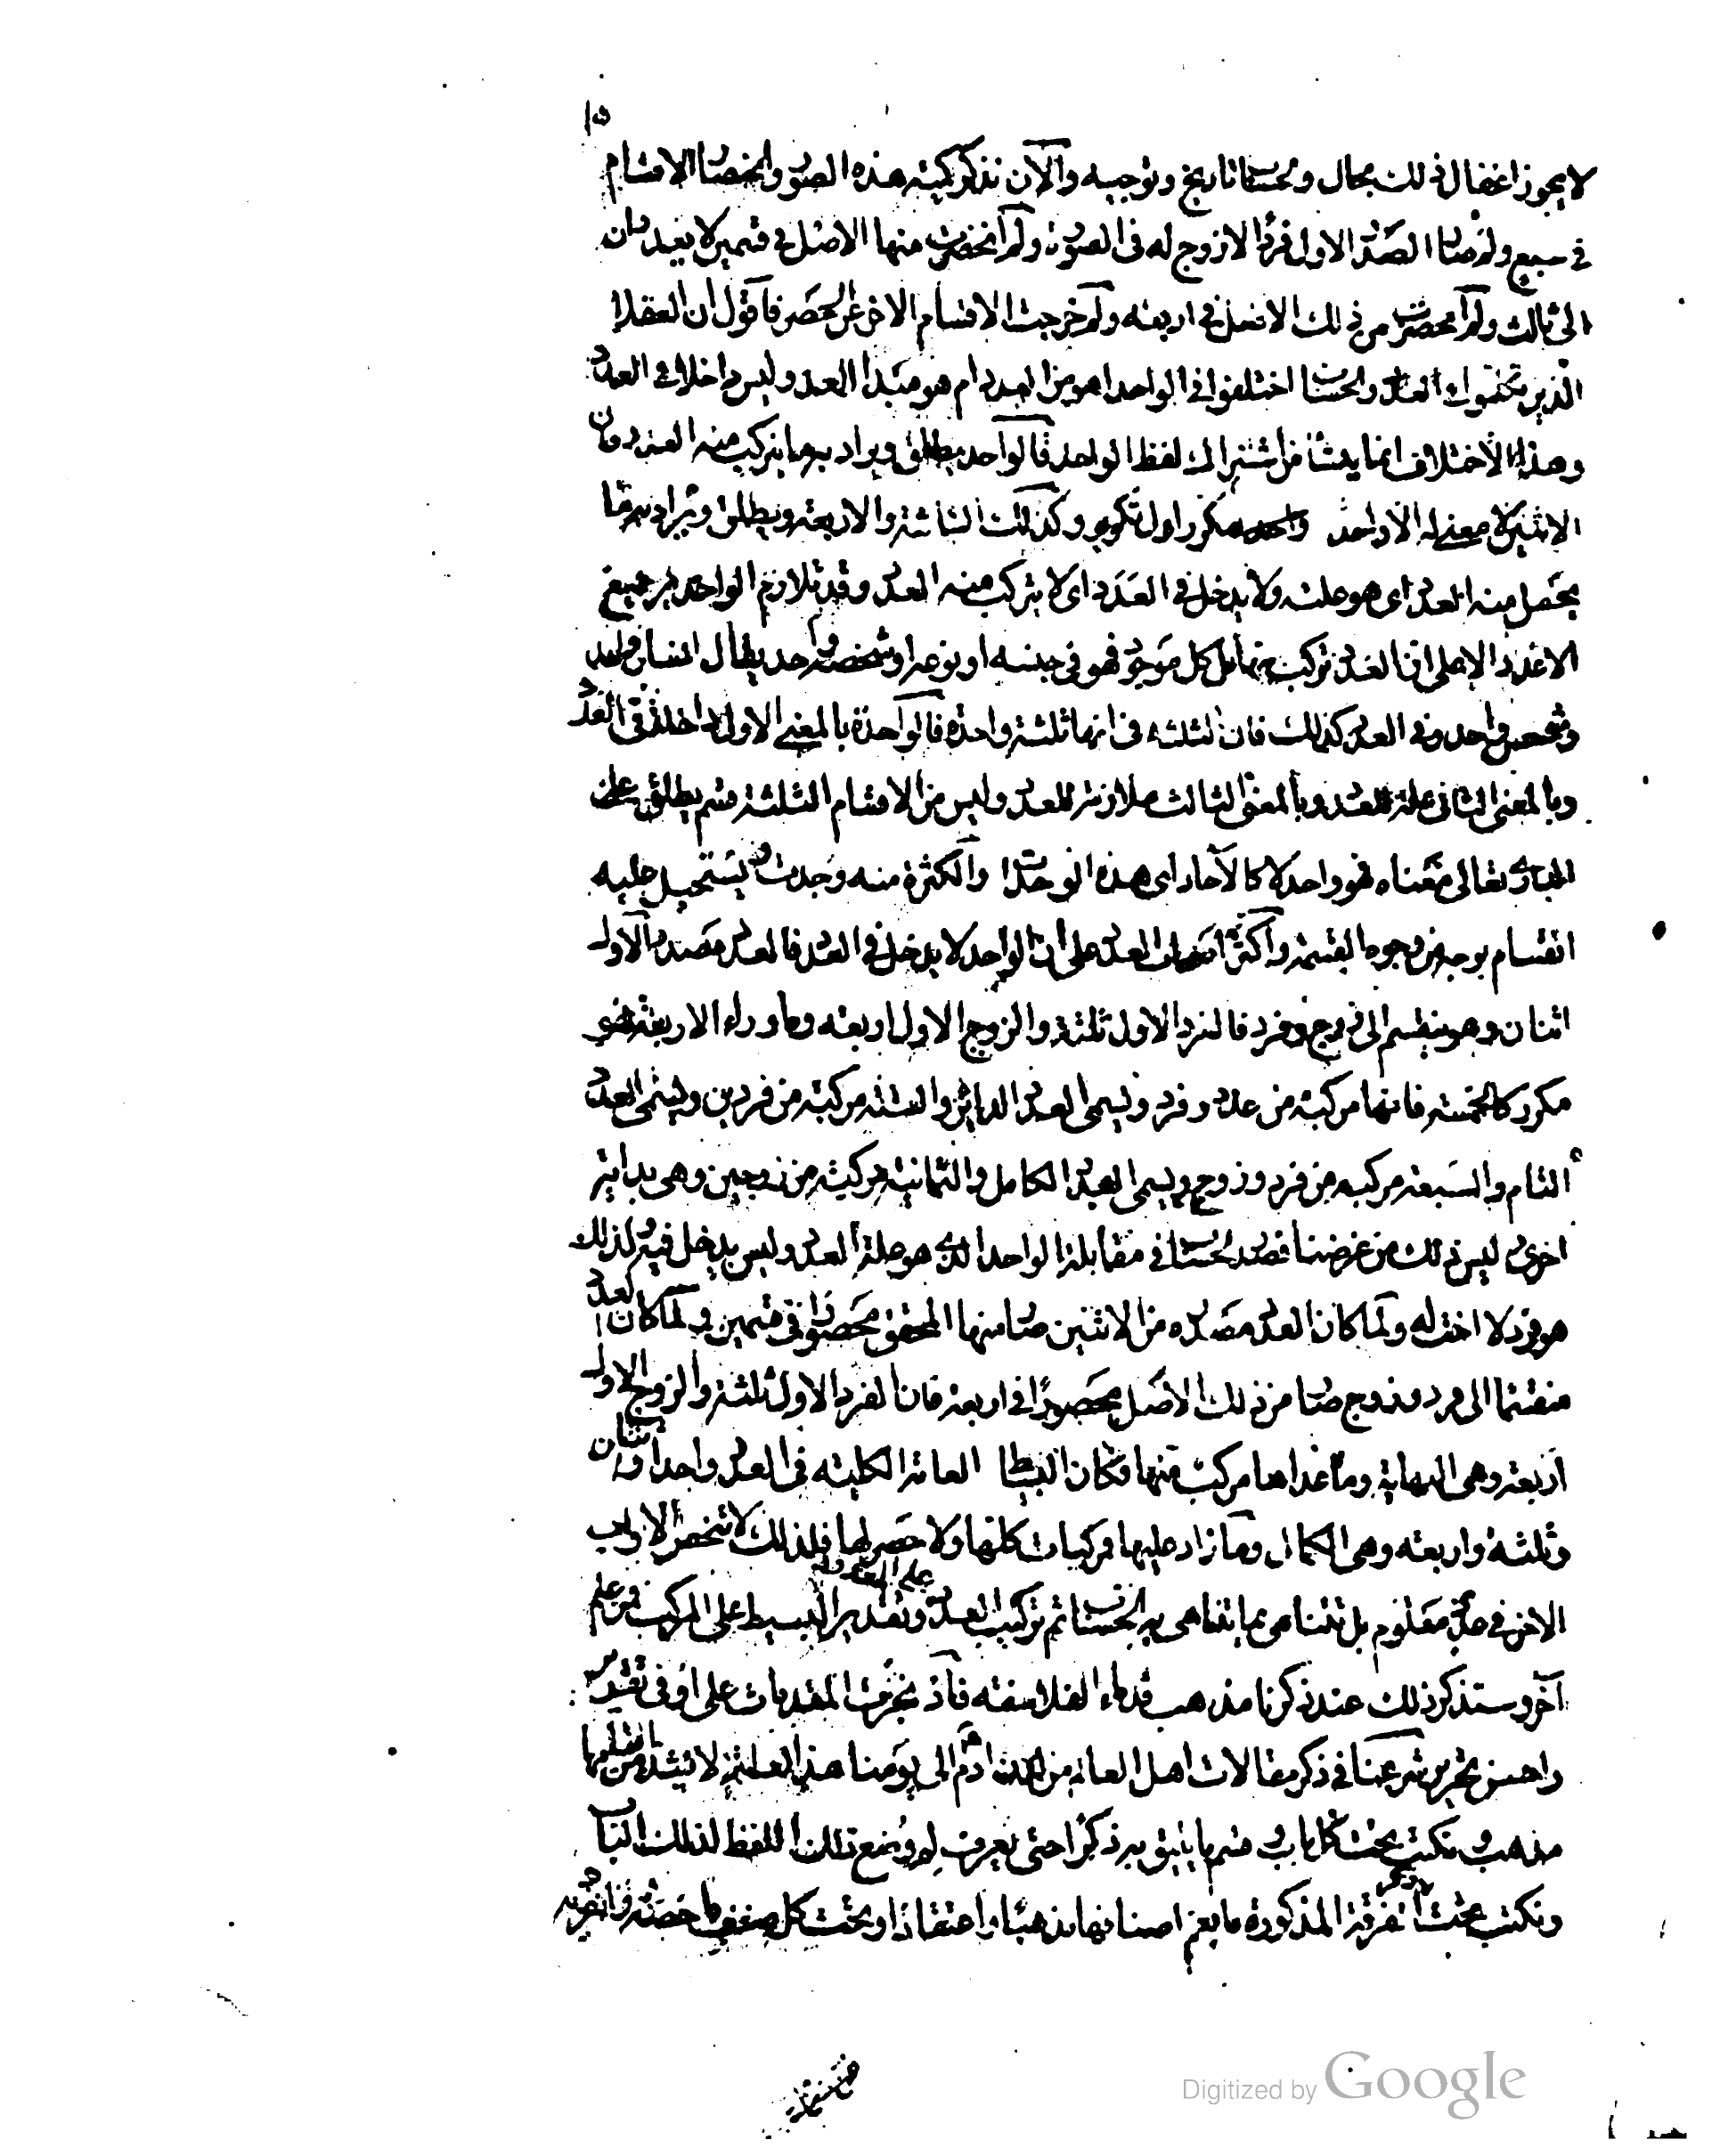 ١٥
لا يجوز اغفال ذلك بحال و محسانا تاريخ وتوجيه والآن نذكر كمية هذه الصور وانحصار الاقسام
في سبع ولم صار الصدر الاول فردا لا زوج له في الصورة ولم انحصرت منها الاصل في قسمين لا يعدوان
الى ثالث ولم انحصرت من ذلك الاصل في اربعة ولم خرجت الاقسام الاخر عن الحصر فاقول ان العقلاء
الذين تكلموا في العدد والحساب اختلفوا في الواحد اهو من العدد ام هو مبدا العدد وليس داخلا في العدد
وهذا الاختلاف انما ينشا من اشتراك لفظ الواحد فالواحد يطلق ويراد به ما يتركب منه العدد فان
الاثنين لا معنى له الا واحد مكرر اول تكرير وكذلك الثلثة والاربعة ويطلق ويراد به ما
يحصل منه العدد اى هو علته ولا يدخل في العدد اى لا يتركب منه العدد وقد تلازم الواحدية جميع
الاعداد لا على ان العدد تركب بها بل كل موجود فهو في جنسه او نوعه او شخصه واحد يقال انسان واحد
وشخص واحد وفي العدد كذلك فان الثلثة في انها ثلثة واحدة فالواحدة بالمعنى الاول داخلة في العدد
وبالمعنى الثانى علة للعدد وبالمعنى الثالث ملازمة للعدد وليس من الاقسام الثلثة قسم يطلق على
البارى تعالى معناه فهو واحد لا كالآحاد اى هذه الوحدات والكثرة منه وجدت ويستحيل عليه
انقسام بوجه من وجوه القسمة واكثر اصحاب العدد على ان الواحد لا يدخل في العدد فالعدد مصدره الاول
اثنان وهو ينقسم الى زوج وفرد فالفرد الاول ثلثة والزوج الاول اربعة وما وراء الاربعة فهو
مكرر كالخمسة فانها مركبة من عدد وفرد ويسمى العدد الدائر والستة مركبة من فردين ويسمى العدد
التام والسبعة مركبه من فرد وزوج ويسمى العدد الكامل والثمانية مركبة من زوجين وهى بداية
اخرى ليس ذلك من غرضنا فصدر الحساب في مقابلة الواحد الذى هو علة العدد وليس يدخل فيه لذلك
هو فرد لا اخت له ولما كان العدد مصدره من الاثنين صار منها المحقق محصورا في قسمين ولما كان العدد
منقسما الى فرد وزوج صار من ذلك الاصل محصورا في اربعة فان الفرد الاول ثلثة والزوج الاول
اربعة وهى النهاية وما عداها مركب منها فكان البسائط العامة الكلية في العدد واحد واثنان
وثلثة واربعة وهى الكمال وما زاد عليها مركبات كلها ولا حصر لها فلذلك لا تنحصر الابواب
الاخر في عدد معلوم بل تتناهى بما يتناهى به الحساب ثم تركيب العدد على المعدود وتقدير البسيط على المركب فمن علم
آخر وسنذكر ذلك عند ذكرنا مذهب قدماء الفلاسفة فاذ نجزت المقدمات على اوفى تقدير
واحسن تحرير شرعنا في ذكر مقالات اهل العالم من لدن آدم الى يومنا هذا لعله لا يشذ من اقسامها
مذهب ونكتب تحت كل باب وقسم ما يليق به ذكرا حتى يعرف لم وضع ذلك اللفظ لذلك الباب
ونكتب تحت ذكر الفرقة المذكورة ما يعم اصنافها مذهبا واعتقادا وتحت كل صنف ما خصه وانفرد به